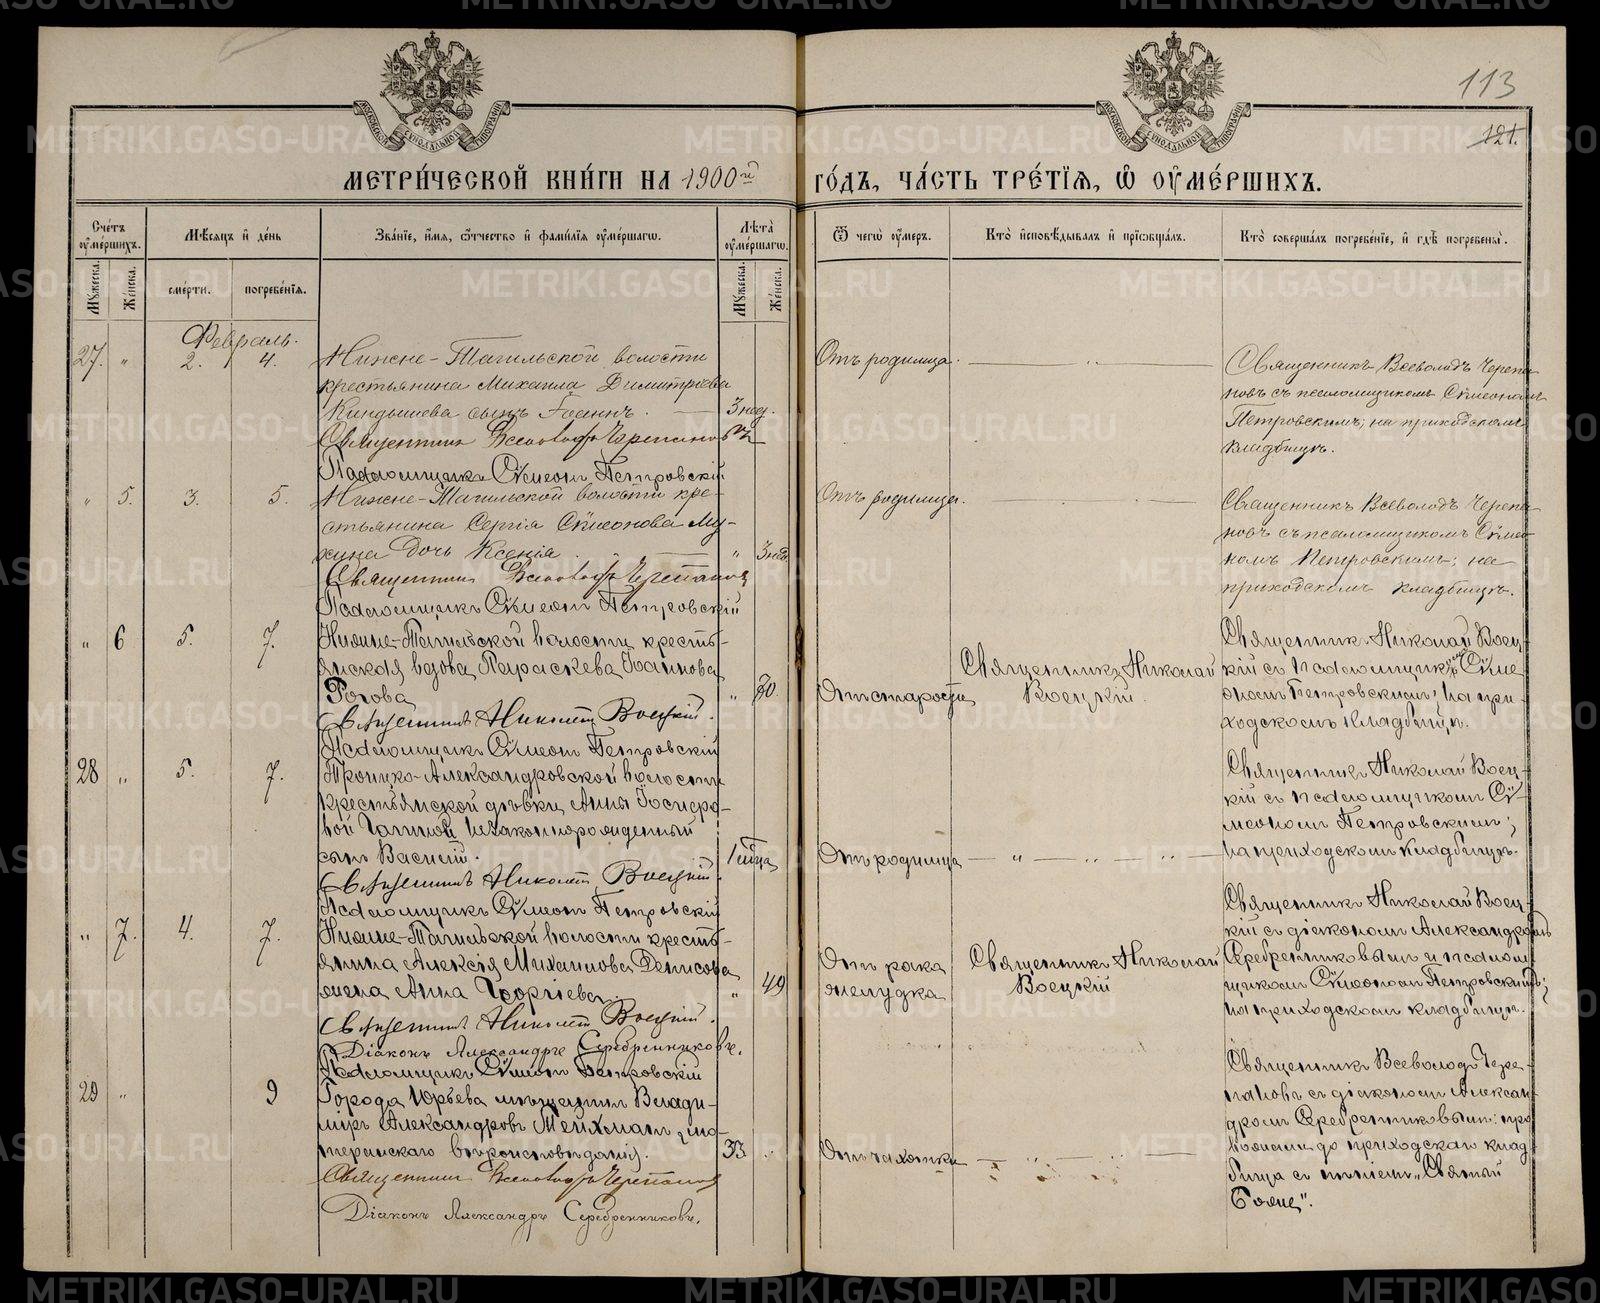 113
121.
МЕТРИ́ЧЕСКОЙ КНИ́ГИ НА 1900й ГО́ДЪ, ЧА́СТЬ ТРЕ́ТЇЯ, Ѡ ОУМЕ́РШИХЪ.
Сче́тъ оумершихъ.
Мѣсяцъ и де́нь
Зва́нїе, и́мя, ѻ́тчество и фами́лїя оуме́ршагѡ.
Лѣта̀ оуме́ршагѡ.
Ѿ чегѡ̀ оу́меръ.
Кто̀ исповѣ́дывалъ и прїѡбща́лъ.
Кто̀ соверша́лъ погребе́нїе, и гдѣ̀ погребены̀.
Мужеска.
Же́нска.
сме́рти.
погребе́нїя.
Му́жеска.
Же́нска.
Февраль.
27. „ 2. 4.
Нижне-Тагильской волости
крестьянина Михаила Димитріева
Киндышева сынъ Іоаннъ. 3 нед.
Священникъ Всеволодъ Черепановъ
Псаломщикъ Сѵмеонъ Петровскій
Отъ родимца.
Священникъ Всеволодъ Черепа-
новъ съ псаломщикомъ Сѵмеономъ
Петровскимъ; на приходскомъ
кладбищѣ.
„ 5. 3. 5.
Нижне-Тагильской волости кре-
стьянина Сергія Сѵмеонова Му-
хина дочь Ксенія. „ 3 нед.
Священникъ Всеволодъ Черепановъ
Псаломщикъ Сѵмеонъ Петровскій
Отъ родимца.
Священникъ Всеволодъ Черепа-
новъ съ псаломщикомъ Сѵмео-
номъ Петровскимъ; на
приходскомъ кладбищѣ.
„ 6 5. 7.
Нижне-Тагильской волости кресть-
янская вдова Параскева Іоаннова
Рогова „ 80
Священникъ Николай Воецкій.
Псаломщикъ Сѵмеонъ Петровскій
Отъ старости
Священникъ Николай
Воецкій.
Священникъ Николай Воец-
кій съ псаломщикомъ Сѵме-
ономъ Петровскимъ; на при-
ходскомъ кладбищѣ.
28 „ 5. 7.
Троицко-Александровской волости
крестьянской дѣвки Анны
незаконнорожденный
сынъ Василій.
Священникъ Николай Воецкій.
Псаломщикъ Сѵмеонъ Петровскій
Отъ родимца
Священникъ Николай Воец-
кій съ псаломщикомъ Сѵ-
меономъ Петровскимъ;
на приходскомъ кладбищѣ.
„ 7. 4. 7.
Нижне-Тагильской волости кресть-
янина Алексія Михаилова Денисова
жена Анна Георгіева „ 49
Священникъ Николай Воецкій.
Діаконъ Александръ Серебренниковъ.
Псаломщикъ Сѵмеонъ Петровскій
Отъ рака
желудка
Священникъ Николай
Воецкій
Священникъ Николай Воец-
кій съ діакономъ Александромъ
Серебренниковымъ и псалом-
щикомъ Сѵмеономъ Петровскимъ;
на приходскомъ кладбищѣ.
29 „ 9
Города Юрьева мѣщанинъ Влади-
міръ Александровъ Мейхманъ, лю-
теранскаго вѣроисповѣданія. 33 „
Священникъ Всеволодъ Черепановъ
Діаконъ Александръ Серебренниковъ.
Отъ чахотки
Священникъ Всеволодъ Чере-
пановъ съ діакономъ Алексан-
дромъ Серебренниковымъ: про-
водили до приходскаго клад-
бища съ пѣніемъ „Святый
Боже".
METRIKI.GASO-URAL.RU